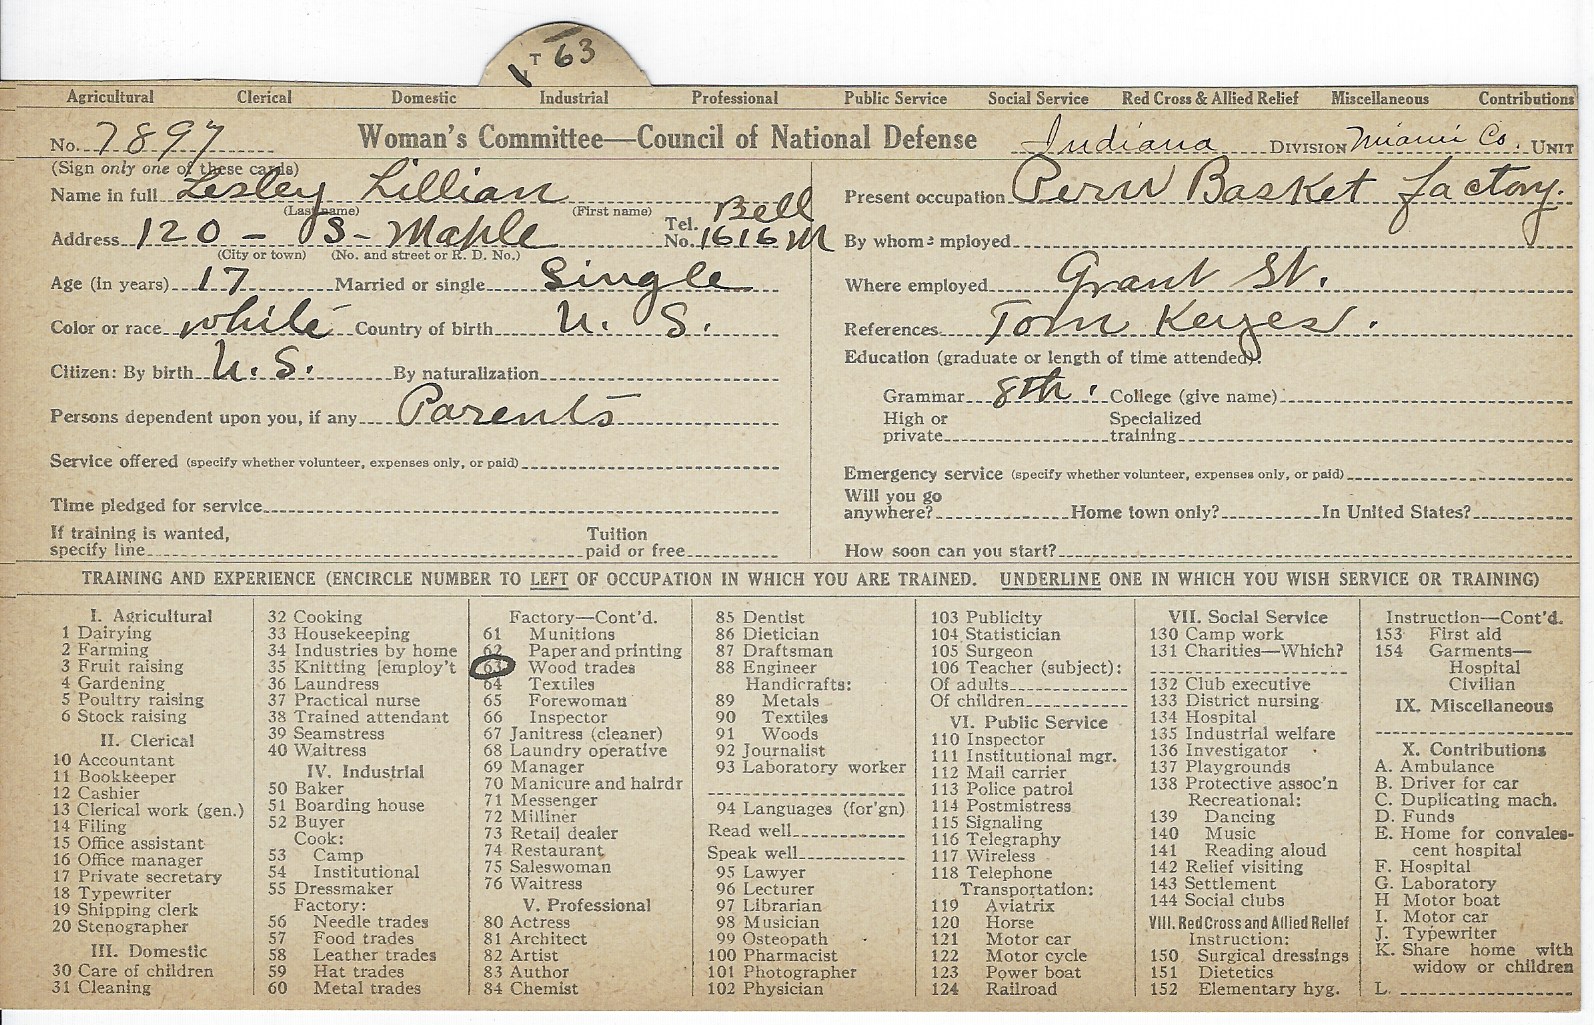 T 63
Agricultural Clerical Domestic Industrial Professional Public Service Social Service Red Cross & Allied Relief Miscellaneous Contributions
No. 7897 Woman's Committee—Council of National Defense Indiana DIVISION Miami Co. UNIT
(Sign only one of these cards)
Name in full Lesley Lillian
(Last name) (First name)
Address 120 - S- Maple Tel. No. Bell 1616 M
(City or town) (No. and street or R. D. No.)
Age (in years) 17 Married or single Single
Color or race white Country of birth U. S.
Citizen: By birth U.S. By naturalization
Persons dependent upon you, if any Parents
Service offered (specify whether volunteer, expenses only, or paid)
Time pledged for service
If training is wanted, specify line Tuition paid or free
Present occupation Peru Basket factory.
By whom employed
Where employed Grant St.
References Tom Keyes.
Education (graduate or length of time attended):
Grammar 8th. College (give name)
High or private Specialized training
Emergency service (specify whether volunteer, expenses only, or paid)
Will you go anywhere? Home town only? In United States?
How soon can you start?
TRAINING AND EXPERIENCE (ENCIRCLE NUMBER TO LEFT OF OCCUPATION IN WHICH YOU ARE TRAINED. UNDERLINE ONE IN WHICH YOU WISH SERVICE OR TRAINING)
I. Agricultural
1 Dairying
2 Farming
3 Fruit raising
4 Gardening
5 Poultry raising
6 Stock raising
II. Clerical
10 Accountant
11 Bookkeeper
12 Cashier
13 Clerical work (gen.)
14 Filing
15 Office assistant
16 Office manager
17 Private secretary
18 Typewriter
19 Shipping clerk
20 Stenographer
III. Domestic
30 Care of children
31 Cleaning
32 Cooking
33 Housekeeping
34 Industries by home
35 Knitting [employ't
36 Laundress
37 Practical nurse
38 Trained attendant
39 Seamstress
40 Waitress
IV. Industrial
50 Baker
51 Boarding house
52 Buyer
Cook:
53 Camp
54 Institutional
55 Dressmaker
Factory:
56 Needle trades
57 Food trades
58 Leather trades
59 Hat trades
60 Metal trades
Factory—Cont'd.
61 Munitions
62 Paper and printing
63 Wood trades
64 Textiles
65 Forewoman
66 Inspector
67 Janitress (cleaner)
68 Laundry operative
69 Manager
70 Manicure and hairdr
71 Messenger
72 Milliner
73 Retail dealer
74 Restaurant
75 Saleswoman
76 Waitress
V. Professional
80 Actress
81 Architect
82 Artist
83 Author
84 Chemist
85 Dentist
86 Dietician
87 Draftsman
88 Engineer
Handicrafts:
89 Metals
90 Textiles
91 Woods
92 Journalist
93 Laboratory worker
94 Languages (for'gn)
Read well
Speak well
95 Lawyer
96 Lecturer
97 Librarian
98 Musician
99 Osteopath
100 Pharmacist
101 Photographer
102 Physician
103 Publicity
104 Statistician
105 Surgeon
106 Teacher (subject):
Of adults
Of children
VI. Public Service
110 Inspector
111 Institutional mgr.
112 Mail carrier
113 Police patrol
114 Postmistress
115 Signaling
116 Telegraphy
117 Wireless
118 Telephone
Transportation:
119 Aviatrix
120 Horse
121 Motor car
122 Motor cycle
123 Power boat
124 Railroad
VII. Social Service
130 Camp work
131 Charities—Which?
132 Club executive
133 District nursing
134 Hospital
135 Industrial welfare
136 Investigator
137 Playgrounds
138 Protective assoc'n
Recreational:
139 Dancing
140 Music
141 Reading aloud
142 Relief visiting
143 Settlement
144 Social clubs
VIII. Red Cross and Allied Relief
Instruction:
150 Surgical dressings
151 Dietetics
152 Elementary hyg.
Instruction—Cont'd.
153 First aid
154 Garments—
Hospital
Civilian
IX. Miscellaneous
X. Contributions
A. Ambulance
B. Driver for car
C. Duplicating mach.
D. Funds
E. Home for convales-
cent hospital
F. Hospital
G. Laboratory
H Motor boat
I. Motor car
J. Typewriter
K. Share home with
widow or children
L.